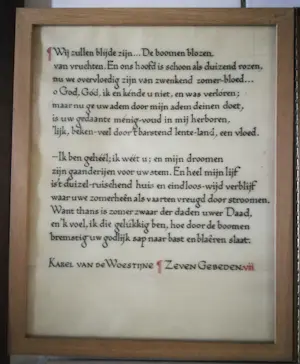 ¶ Wij zullen blijde zijn... De boomen blozen
van vruchten. En ons hoofd is schoon als duizend rozen,
nu we overvloedig zijn van zwenkend zomer-bloed...
o God, God, ik en kende u niet, en was verloren;
maar nu ge uw adem door mijn adem deinen doet,
is uw gedaante menig-voud in mij herboren,
lijk, beken-veel door 't barstend lente-land, een vloed.
—Ik ben geheel; ik weet u; en mijn droomen
zijn gaanderijen voor uw stem. En heel mijn lijf
is 't duizel-ruischend huis en eindloos-wijd verblijf
waar uwe zomerheên als vaarten vreugd door stroomen.
Want thans is zomer zwaar der daden uwer Daad,
en 'k voel, ik die gelukkig ben, hoe door de boomen
bremstig uw godlijk sap naar bast en blaêren slaat.
Karel van de Woestijne ¶ Zeven Gebeden. VII